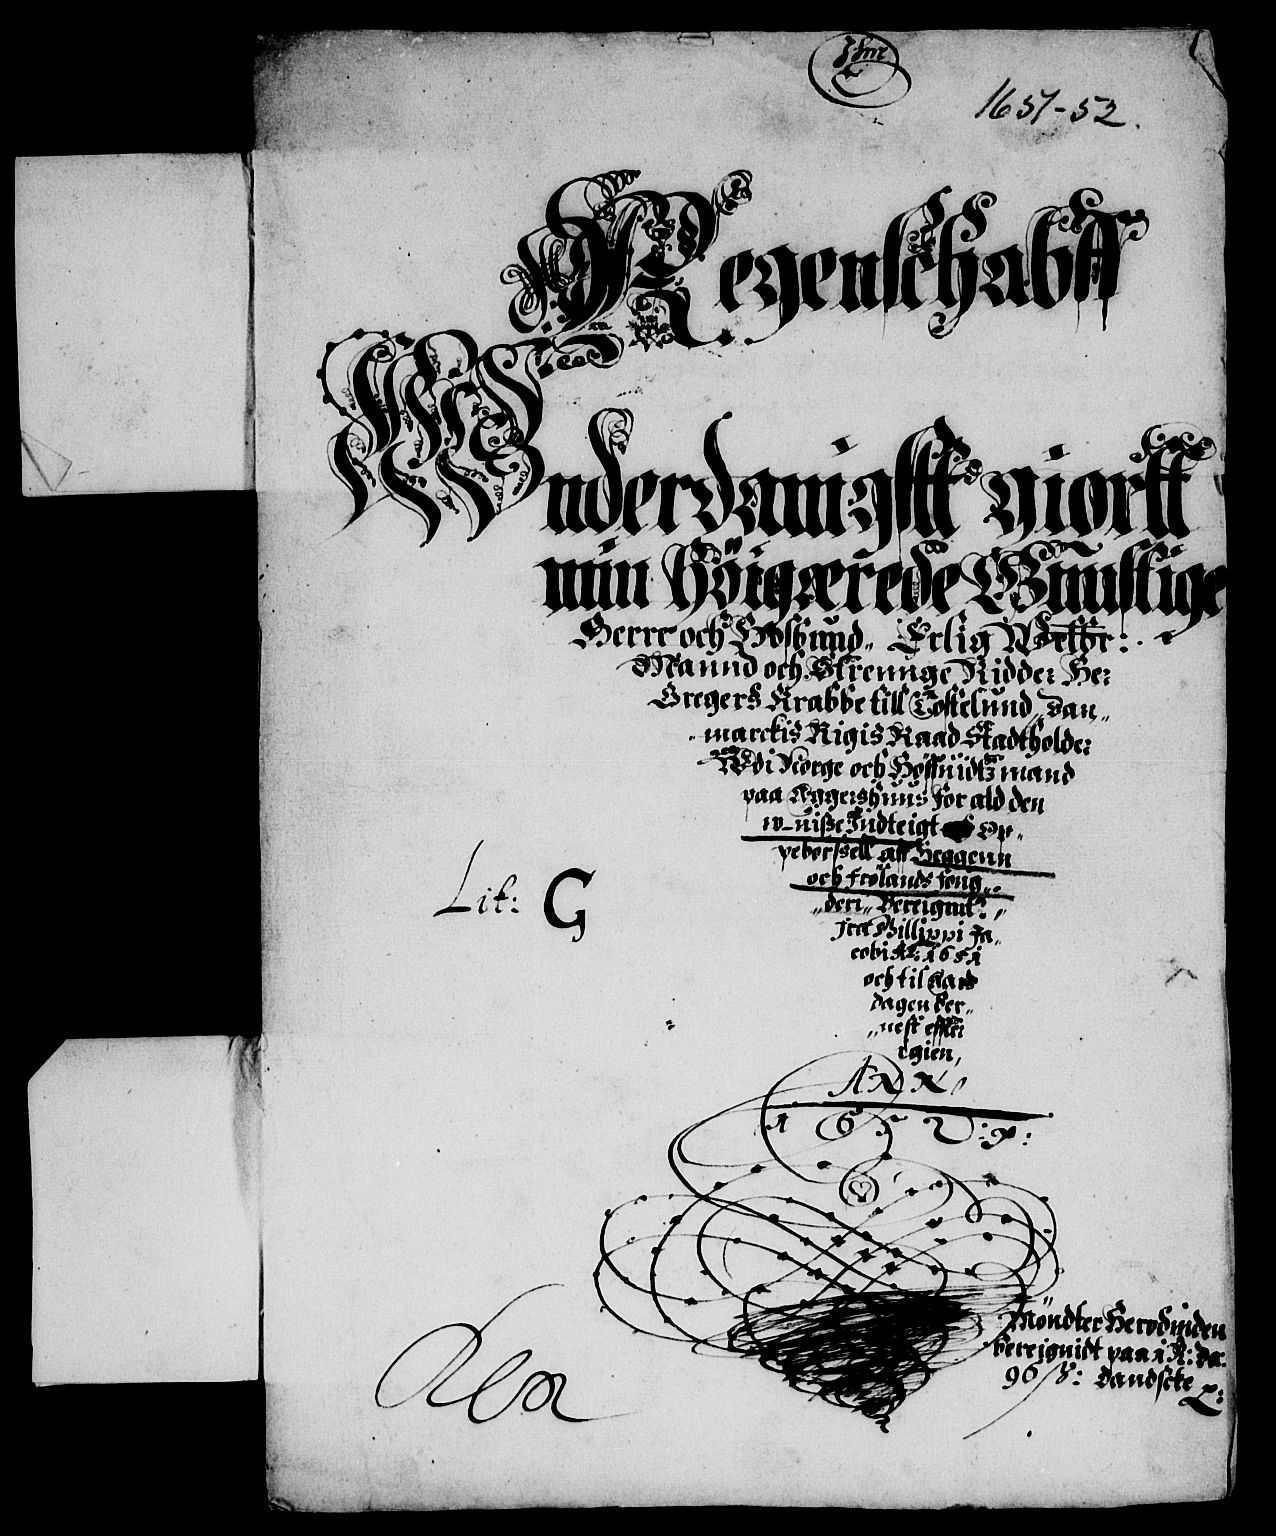 1651-52.
Regenschabff
Underdanigst giortt
min Höigærede Gunstige
Herre och Hosbund, Erlig Welbr:
Mannd och Strennge Ridder Her
Gregers Krabbe till Tostelund, Dan„
marckis Rigis Raad Stadtholder
Udi Norge och Höffuidtzmand
paa Aggershuus for ald den
w-uiße Indteigt Op„
peborßell aff Heggenn
och Frølands foug„
„deri„ Bereignit:„
fra Phillippi Ja„
cobi Aō: 1651
och til Aars
dagen der„
„nest effter
igien,
Anno
1652:
Lit: G
Möndter Herudinden
bereignidt paa 1 R: dr.
96 ß: dandscke